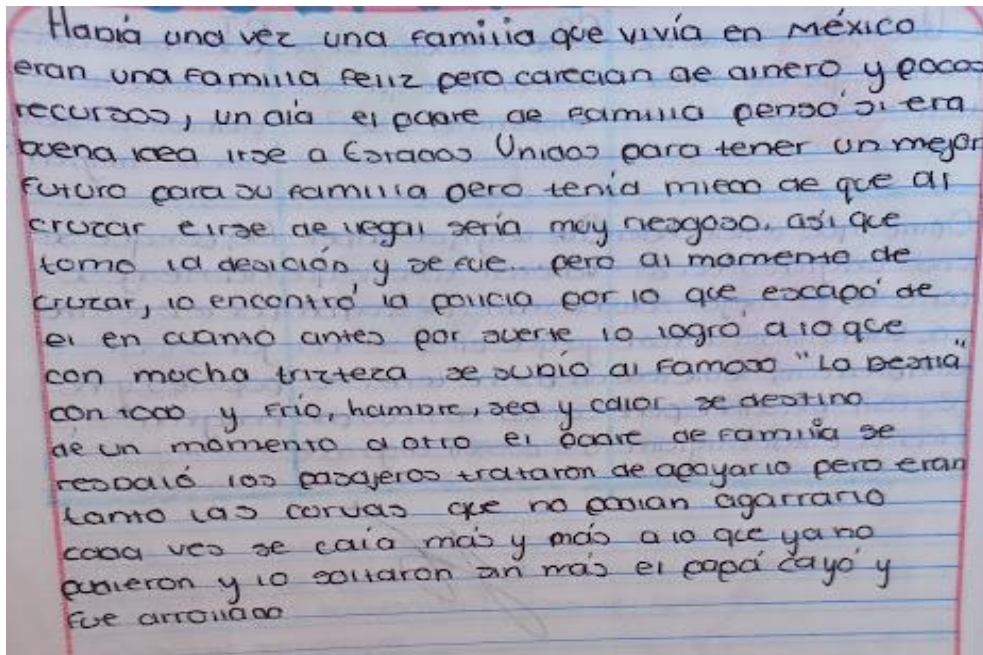 Había una vez una familia que vivía en México
eran una familia feliz pero carecian de dinero y pocos
recursos, un día el padre de familia pensó si era
buena idea irse a Estados Unidos para tener un mejor
futuro para su familia pero tenía miedo de que al
cruzar e irse de ilegal sería muy riesgoso, así que
tomo la desición y se fue pero al momento de
cruzar, lo encontró la policia por lo que escapó de
el en cuanto antes por suerte lo logró a lo que
con mucha trizteza se subió al famoso "La Bestia"
con todo y frío, hambre, sed y calor se destino
de un momento a otro el padre de familia se
resbaló los pasajeros trataron de apoyarlo pero eran
tanto las corvas que no podian agarrarlo
cada ves se caía más y más a lo que ya no
pudieron y lo soltaron sin más el papá cayó y
fue arrollado